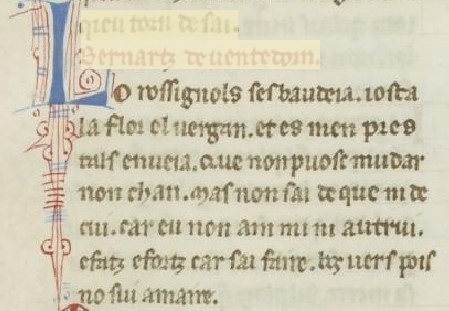 queu torn de sai.
Bernartz deuentedorn.
Lo rossignols sesbaudeia. iosta
la flor el uergan. et es men pres
tals enueia. Que non puosc mudar
non chan. Mas non sai de que ni de
cui. car eu non am mi ni autrui.
esfatz esfortz car sai faire. bos uers pois
no sui amaire.